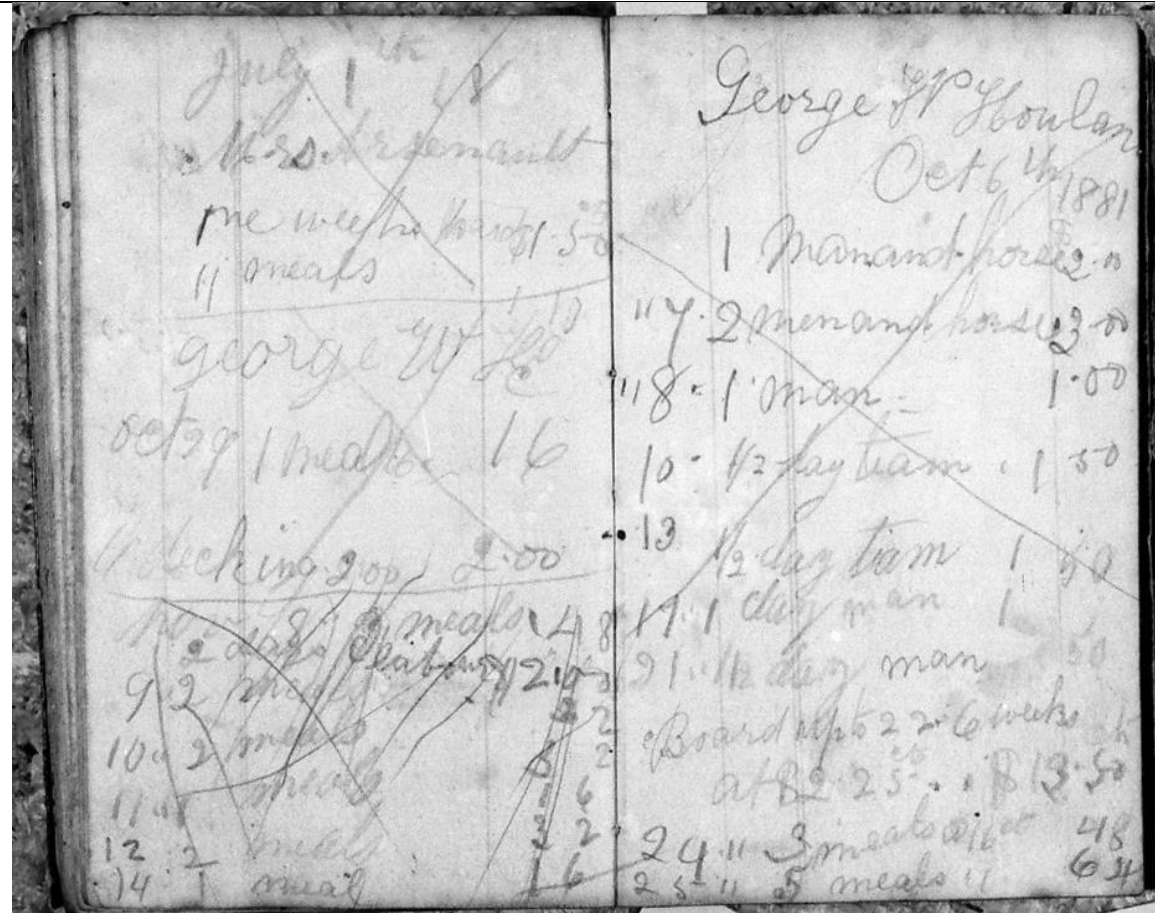 July 1 th
Mrs. Arsenault
one week board $1.50
11 meals
1 10
George W
oct 29 1 meal 16
2.00
8 3 meals 48
2 days labour
9 2 meals 32
10. 2 meals 32
11 1 meal 16
12 2 meals 32
14 1 meal 16
George W Houlan
Oct 6th 1881
1 Man and horse 2.00
"7. 2 men and horse 3.00
"8. 1 man 1.00
10. 1/2 day team 1 50
13 1/2 day team 1 50
1 day man 1
21. 1/2 day man 50
Board up to 22. 6 weeks
at $2.25 $13.50
24 " 3 meals @ 16 48
25 " 5 meals " 64